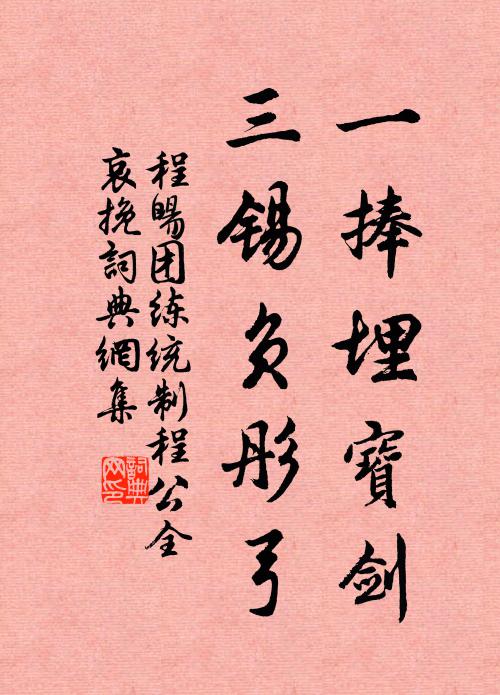 一捧埋寶劍
三錫負彤弓
程暘团练統制程公全
哀挽詞典網集
詞典网印